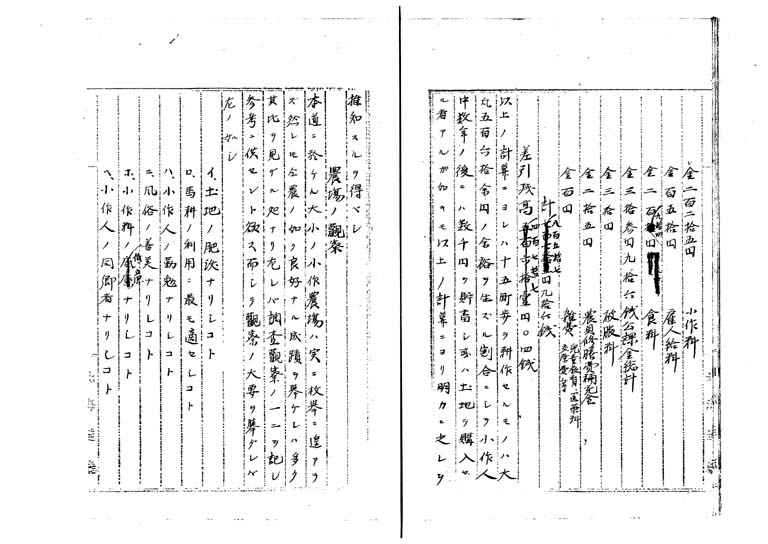 金二百二拾五円 小作料
金百五拾円 雇人給料
金二百円 食料
金三拾参円九拾六銭 公課金総計
金三拾円 被服料
金二拾五円 農具修膳費補充金
金百円 雑費
計 九百五拾七円九拾六銭
差引残高 四百七拾七円〇四銭
以上ノ計算ニヨレハ十五町歩ヲ耕作セルモノハ大
凡五百六拾余円ノ余裕ヲ生スル割合ニシテ小作人
中数年ノ後ニハ数千円ヲ貯畜シ或ハ土地ヲ購入セ
ル者アルガ如キモ以上ノ計算ニヨリ明カニ之レヲ
推知スルヲ得ベシ
農場ノ観察
本道ニ於ケル大小ノ小作農場ハ実ニ枚挙ニ遑アラ
ズ然レモ全農ノ如ク良好ナル成蹟ヲ挙ケレハ多ク
其比ヲ見ザル処ナリ左レバ調査観察ノ一二ヲ記シ
参考ニ供セント欲ス而シテ観察ノ大要ヲ挙グレバ
左ノ如シ
イ、土地ノ肥沃ナリシコト
ロ、馬耕ノ利用ニ最モ適セシコト
ハ、小作人ノ勤勉ナリシコト
ニ、風俗ノ善美ナリシコト
ホ、小作料ノ低廉ナリシコト
ヘ、小作人ノ同郷者ナリシコト